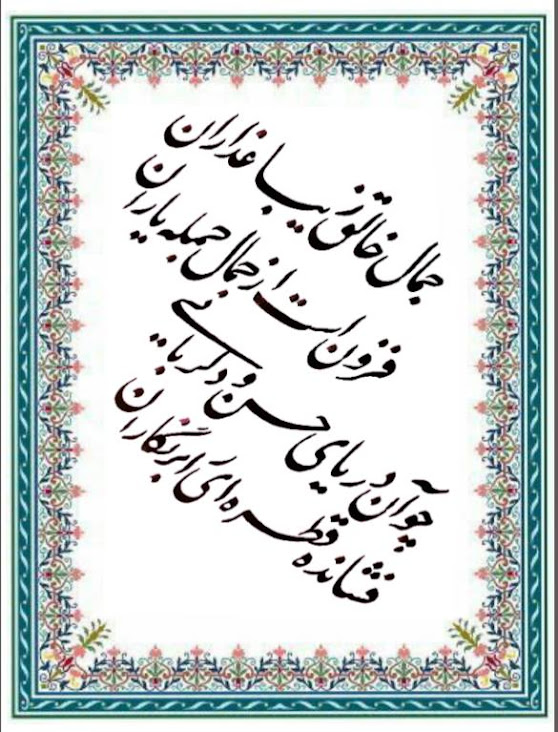 جمال خالق زیبا عذاران
فزون است از جمال جمله یاران
چو آن دریای حسن و دلربایی
فشانده قطره‌ای بر نگاران